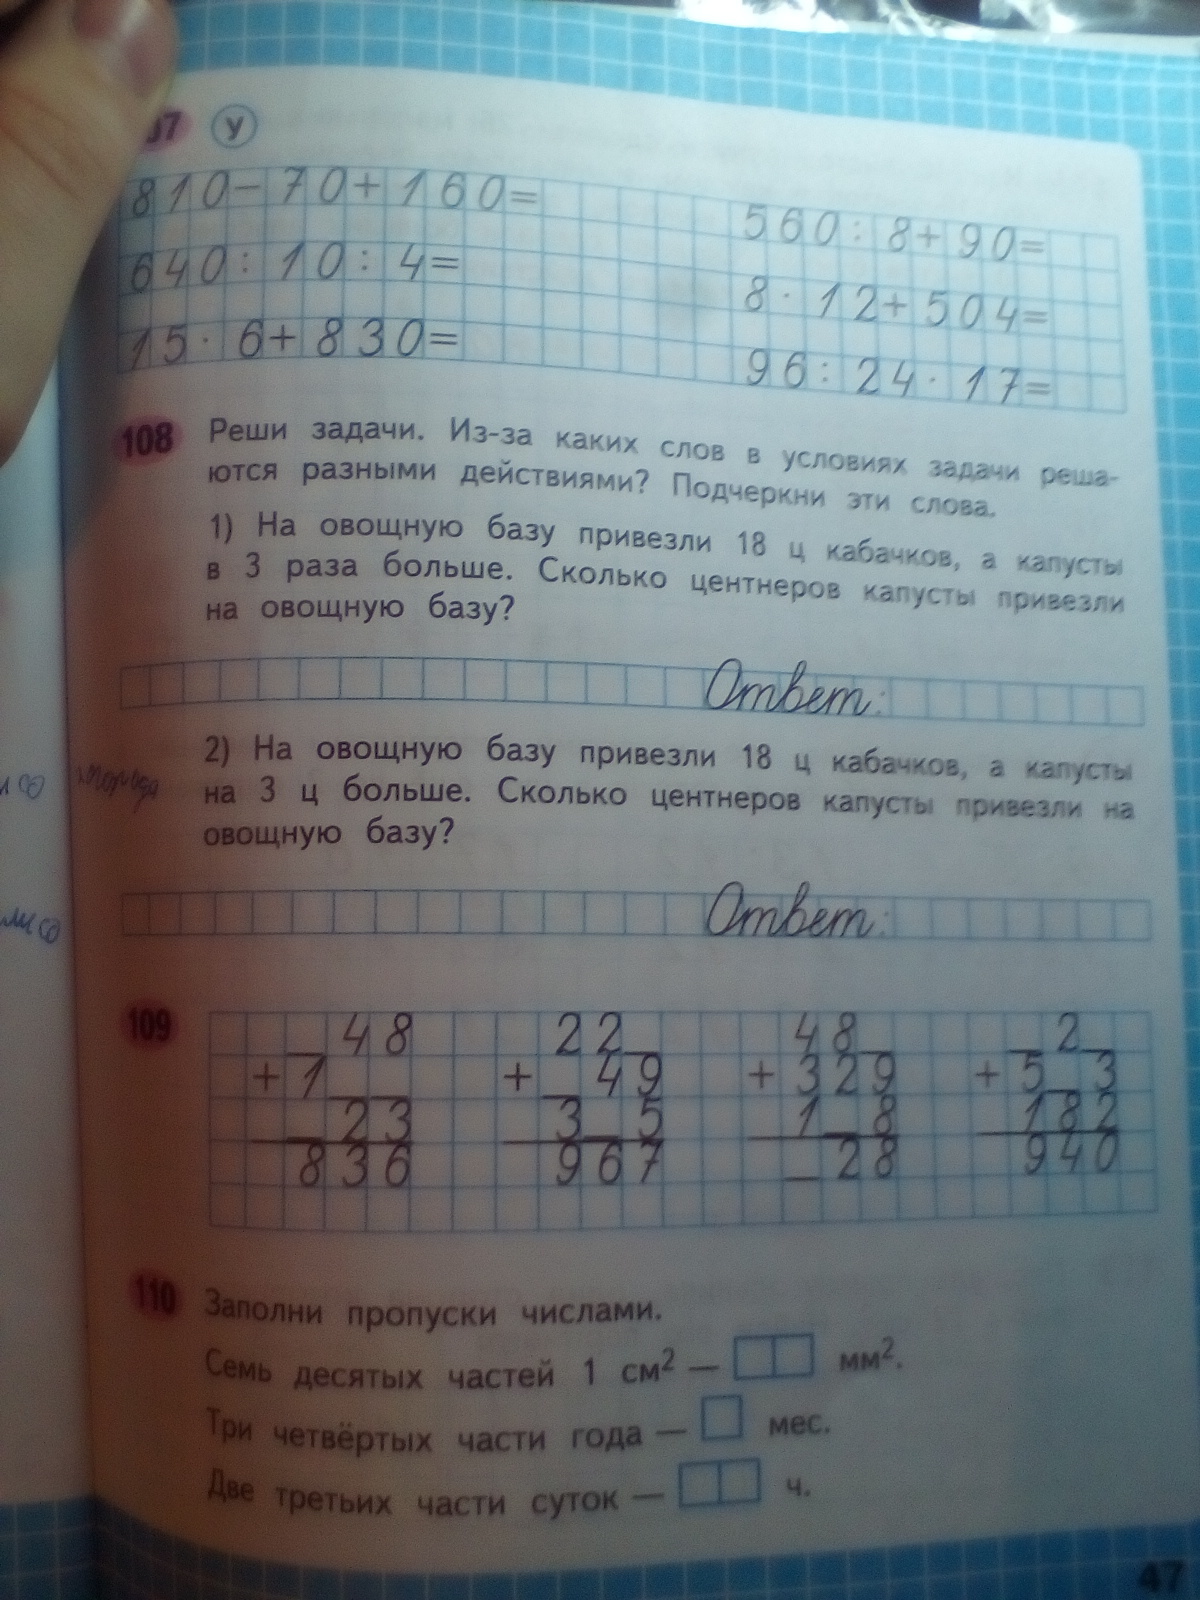 У
810-70+160=
560:8+90=
640:10:4=
8·12+504=
15·6+830=
96:24·17=
108 Реши задачи. Из-за каких слов в условиях задачи реша-
ются разными действиями? Подчеркни эти слова.
1) На овощную базу привезли 18 ц кабачков, а капусты
в 3 раза больше. Сколько центнеров капусты привезли
на овощную базу?
Ответ:
2) На овощную базу привезли 18 ц кабачков, а капусты
на 3 ц больше. Сколько центнеров капусты привезли на
овощную базу?
Ответ:
109
_48 22_ 48_ _2_
+1__ +_49 +329 +5_3
_23 3_5 1_8 182
836 967 _28 940
110 Заполни пропуски числами.
Семь десятых частей 1 см² — мм².
Три четвёртых части года — мес.
Две третьих части суток — ч.
47